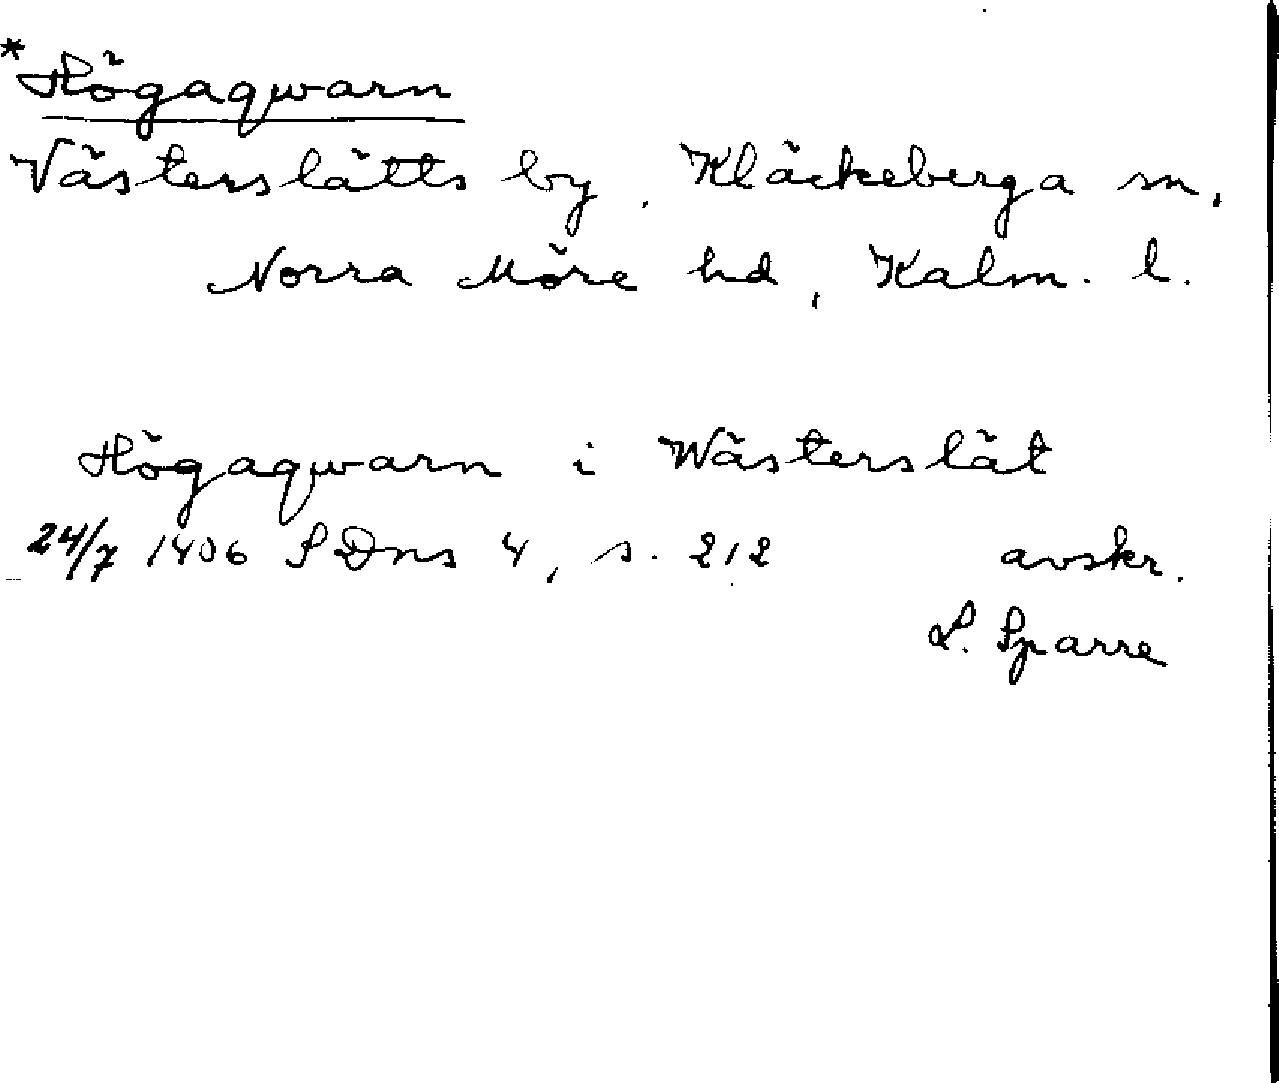 *Högaqwarn
Västerslätts by, Kläckeberga sn,
Norra Möre hd, Kalm. l.
Högaqwarn i Wästerslät
24/7 1406 SDns 4, s. 212 avskr.
L. Sparre